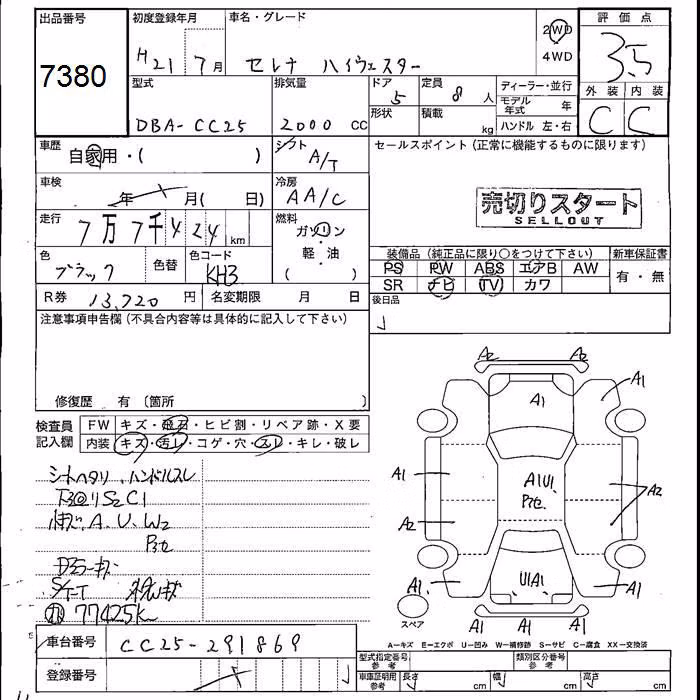 出品番号
7380
初度登録年月
H21 7月
車名・グレード
セレナ ハイウェスター
2WD
4WD
評価点
3.5
外装 内装
C C
型式
DBA-CC25
排気量
2000 cc
ドア
5
形状
定員
8 人
積載
kg
ディーラー・並行
モデル年式 年
ハンドル 左・右
車歴
自家用・( )
シフト
A/T
セールスポイント (正常に機能するものに限ります)
車検
年 月( 日)
冷房
AA/C
売切りスタート
SELLOUT
走行
7万7千424 km
燃料
ガソリン
・
軽・油
( )
色
ブラック
色替
色コード
KH3
装備品 (純正品に限り○をつけて下さい)
新車保証書
PS PW ABS エアB AW
有・無
SR ナビ (TV) カワ
R券 13,720 円
名変期限 月 日
後日品
注意事項申告欄 (不具合内容等は具体的に記入して下さい)
修復歴 有 〔箇所 〕
検査員
記入欄
FW キズ・飛石・ヒビ割・リペア跡・X要
内装 キズ・汚レ・コゲ・穴・スレ・キレ・破レ
シートヘタリ、ハンドルスレ
S2C1
A、U、W2
77425K
A2 A2
A1
A1
A1
A1U1
A2
A2
U1A1
A1
A1
A1 A1
スペア
A-キズ E-エクボ U-凹み W-補修跡 S-サビ C-腐食 XX-交換済
車台番号
CC25-291869
登録番号
型式指定番号
参考
類別区分番号
参考
車庫証明用
参考
長さ cm 幅 cm 高さ cm